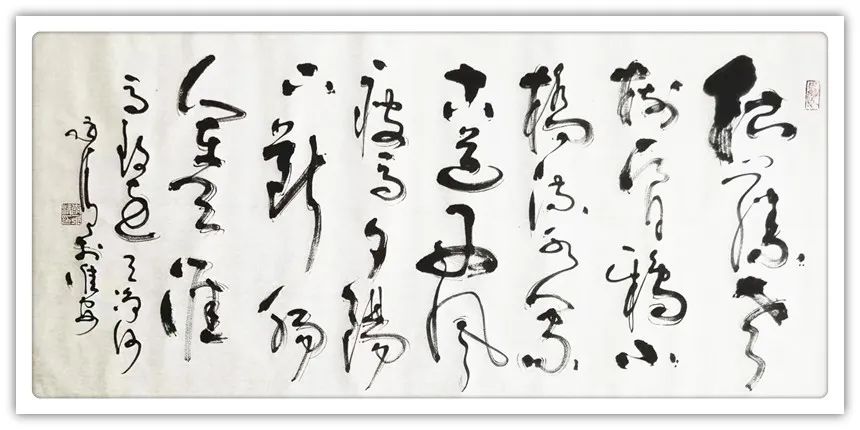 枯藤老
树昏鸦小
桥流水人家
古道西风
瘦马夕阳
下断肠
人在天涯
马致远天净沙